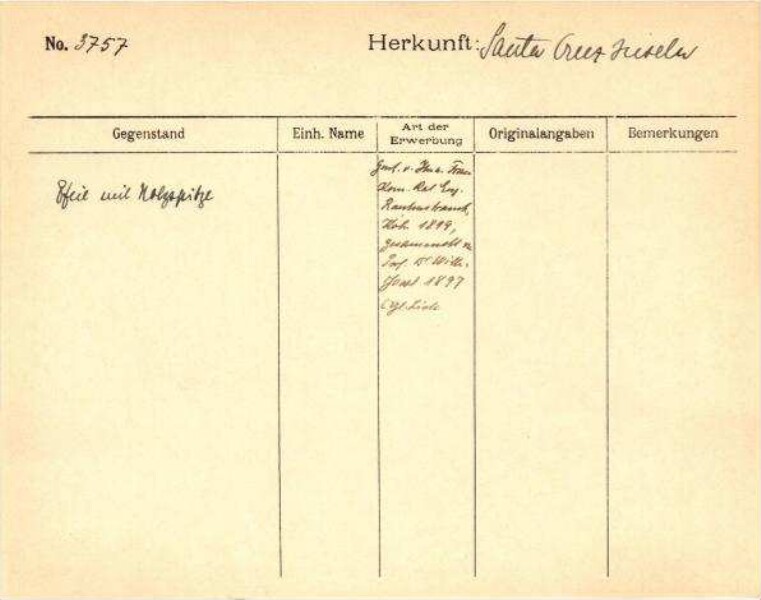 No. 3757
Herkunft: Santa Cruz Inseln
Gegenstand
Einh. Name
Art der
Erwerbung
Originalangaben
Bemerkungen
Pfeil mit Holzspitze
Gesch. v. Frau
Kom. Rat Eug.
Rautenstrauch,
Köln 1899,
gesammelt v.
Prof. Dr Wilh.
Joest 1897